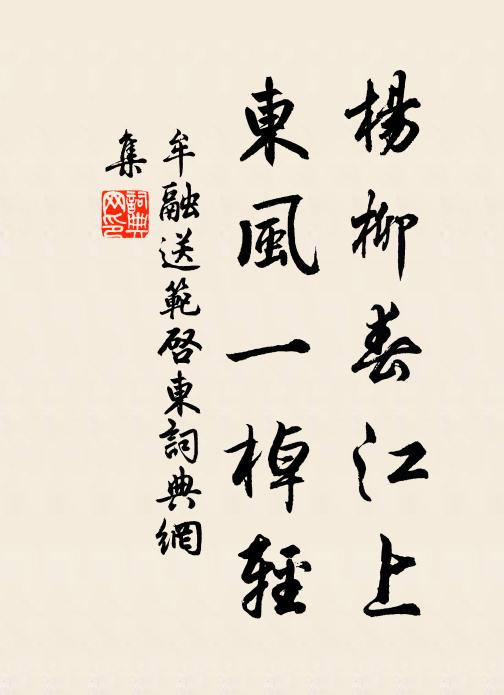 楊柳春江上
東風一棹輕
牟融送範啓東詞典網
集
詞典網印